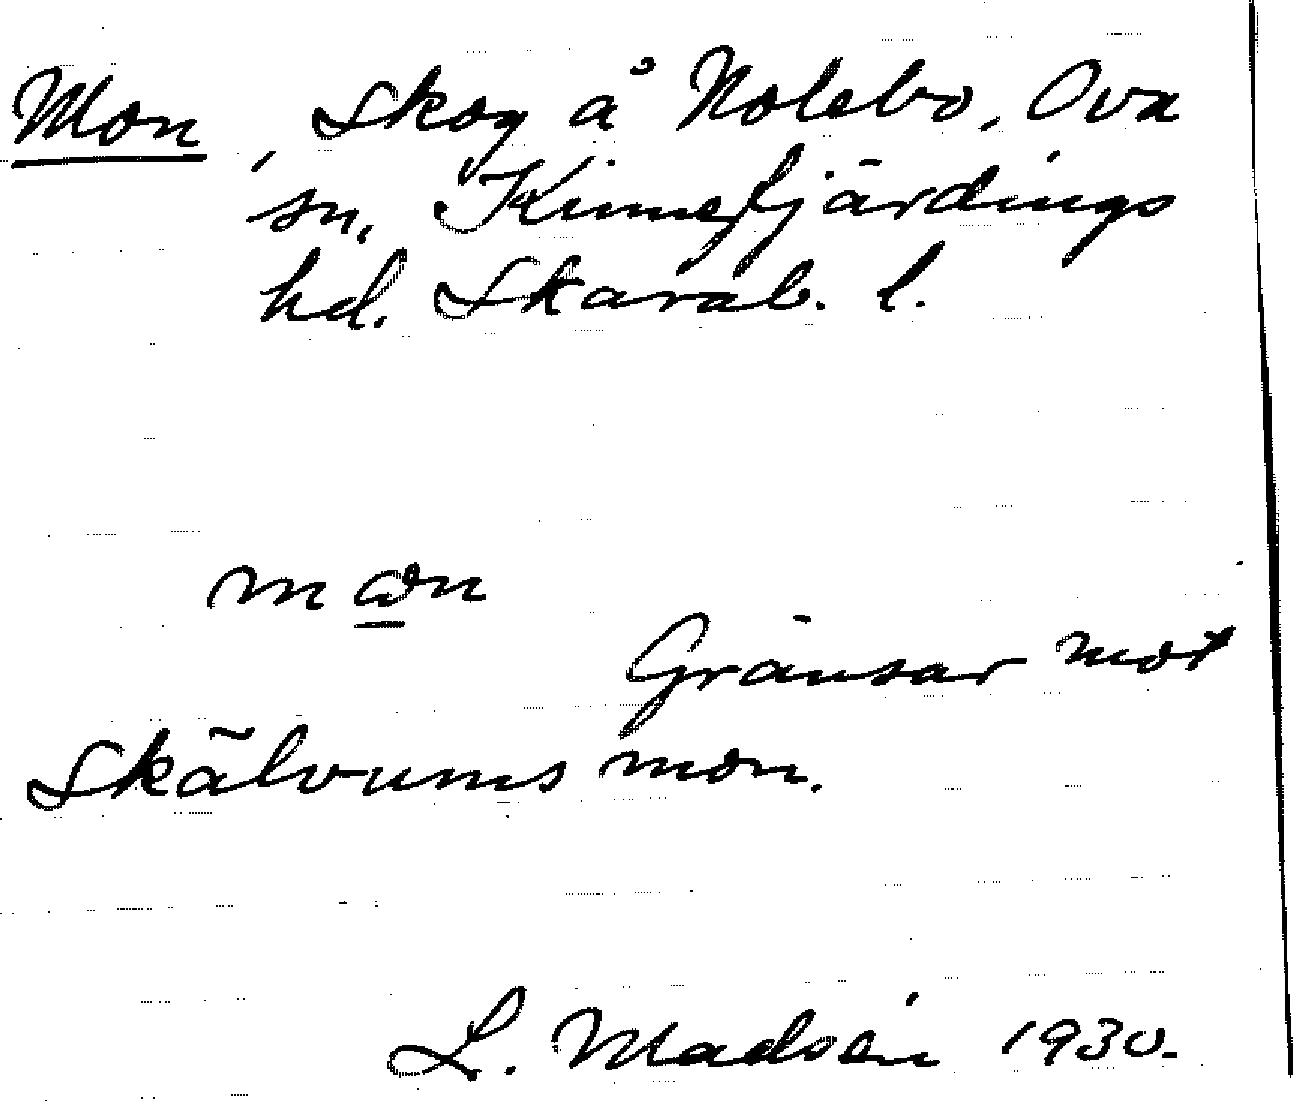 Mon, Skog å Nolebo, Ova
sn, Kinnefjärdings
hd. Skarab. l.
mɷn
Gränsar mot
Skälvums mon.
L. Madsén 1930.